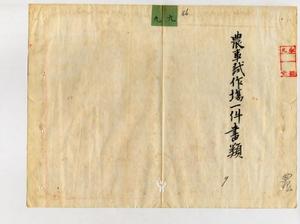 農事試作場一件書類
九九